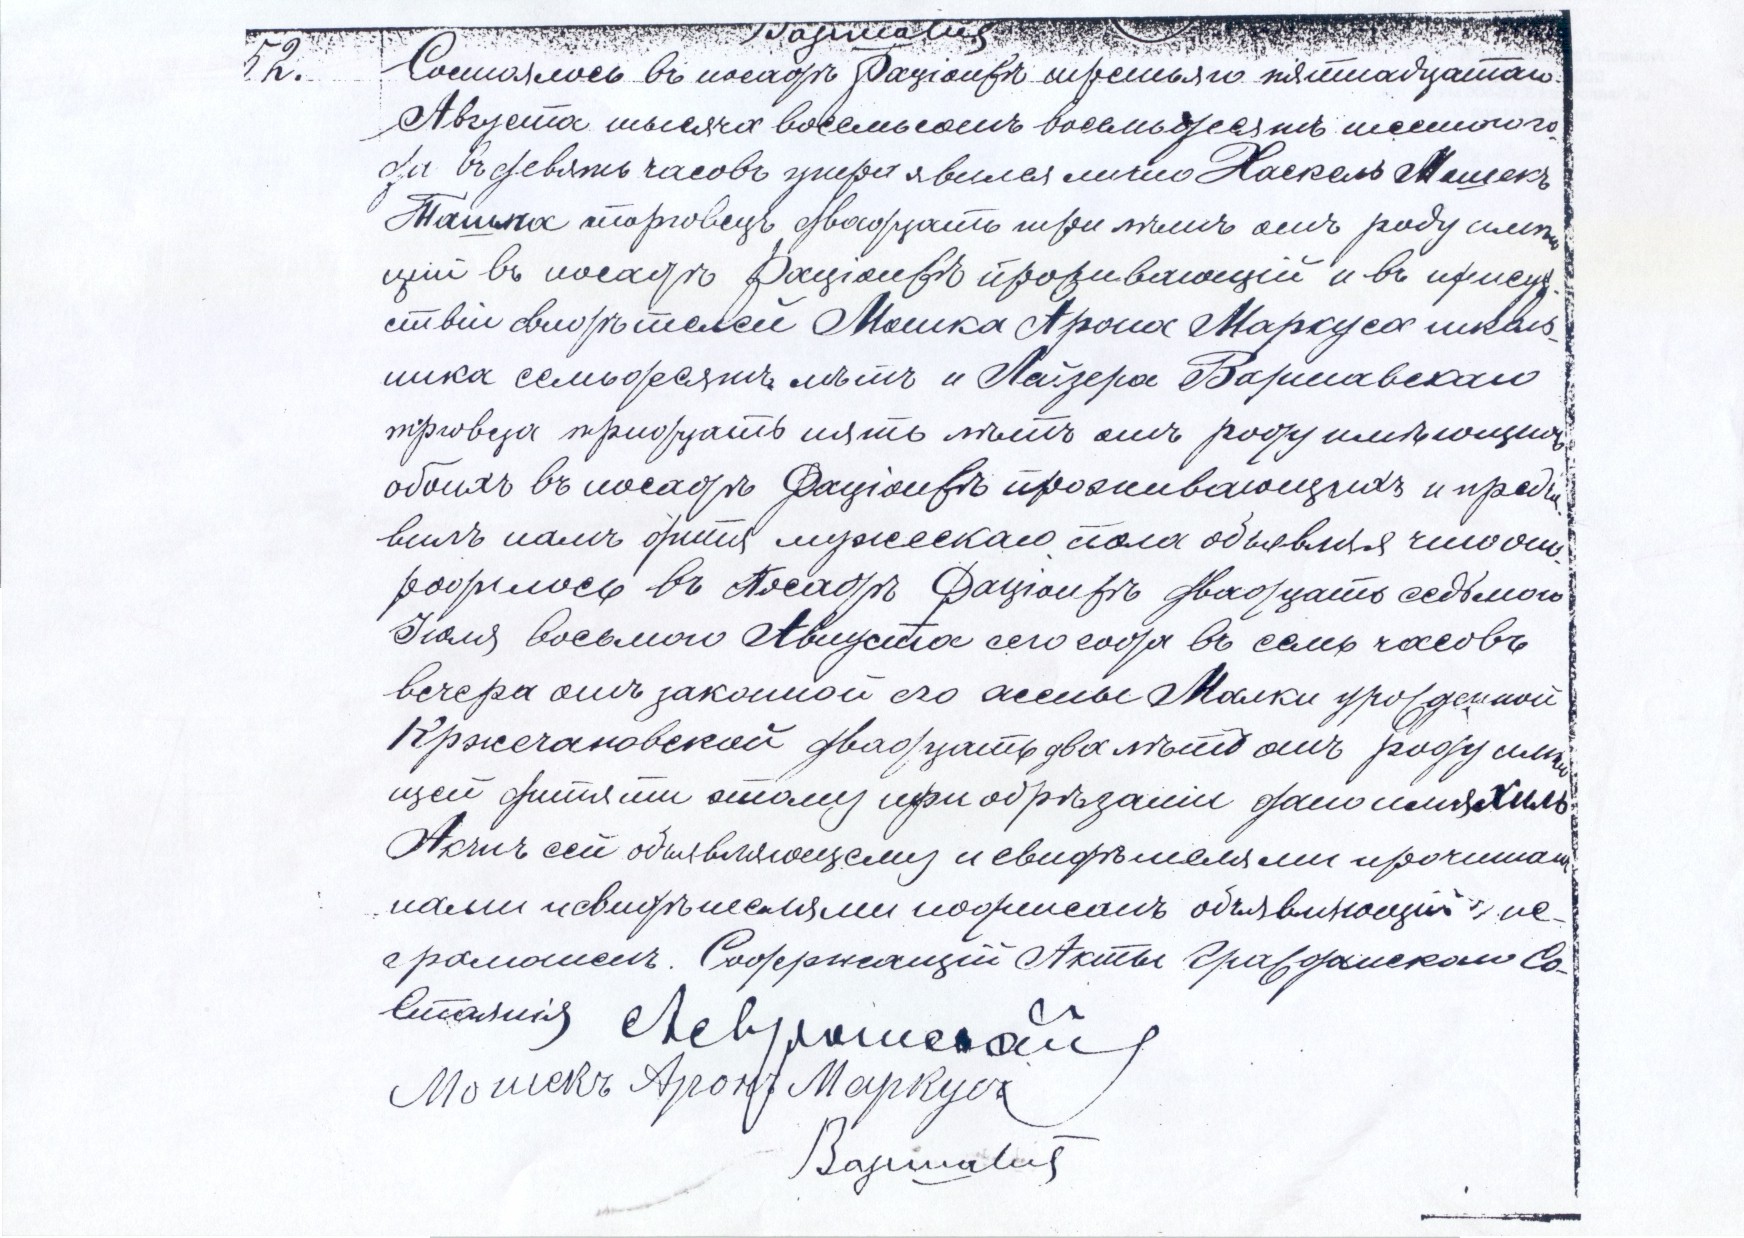 Варшавия
52. Состоялось въ посадѣ Раціонжѣ третьяго пятнадцатаго
Августа тысяча восемьсотъ восемьдесятъ шестого го-
да въ девять часовъ утра явился лично Хаскель Мошекъ
Ташка торговецъ двадцать три лѣтъ отъ роду имѣю
щій въ посадѣ Раціонжѣ проживающій и въ присут-
ствіи свидѣтелей Мошка Арона Маркуса школь-
ника семьдесятъ лѣтъ и Лайзера Варшавскаго
торговца тридцать пять лѣтъ отъ роду имѣющихъ
обоихъ въ посадѣ Раціонжѣ проживающихъ и предъя
вилъ намъ дитя мужескаго пола объявляя что оно
родилось въ Посадѣ Раціонжѣ двадцать седьмого
Іюля восьмого Августа сего года въ семь часовъ
вечера отъ законной его жены Малки урожденной
Кржечановской двадцать два лѣтъ отъ роду имѣю
щей дитяти этому при обрѣзаніи дано имя Хиль
Актъ сей объявляющему и свидѣтелями прочитанъ
нами и свидѣтелями подписанъ объявляющій не-
грамотенъ. Содержащій Акты Гражданскаго Со-
стоянія
Мошекъ Аронъ Маркусъ